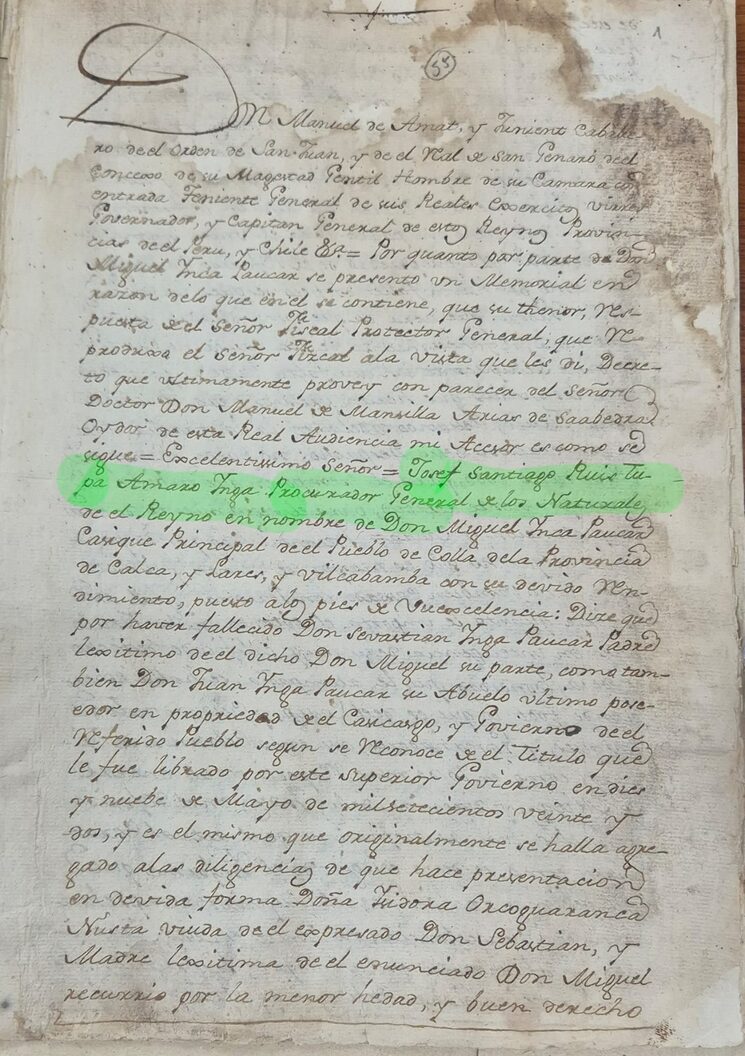 55
1
Don Manuel de Amat, y Junient Cavalle
ro de el Orden de San Juan, y de el Real de San Genaro del
Concexo de su Magestad Gentil Hombre de su Camara con
entrada Teniente General de sus Reales Exercitos virrey
Governador, y Capitan General de estos Reynos Provin
cias de el Peru, y Chile &a.= Por quanto por parte de Don
Miguel Inca Paucar se presento vn Memorial en
razon delo que en el se contiene, que su thenor, Res-
puesta de el Señor Fiscal Protector General, que Re
produxa el Señor Fizcal ala vista que les di, Decre-
to que vltimamente provey con parecer del Señor
Doctor Don Manuel de Mansilla Arias de Saabedra
Oydor de esta Real Audiencia mi Acesor es como se
sigue = Excelentissimo Señor = Josef Santiago Ruis Tu-
pa Amaro Inga Procurador General de los Naturales
de el Reyno en nombre de Don Miguel Inca Paucar
Casique Principal de el Pueblo de Colla dela Provincia
de Calca, y Lares, y Vilcabamba con su devido Ren-
dimiento, puesto alos pies de Vuexcelencia: Dize que
por haver fallecido Don Sevastian Inga Paucar Padre
lexitimo de el dicho Don Miguel su parte, como tam-
bien Don Juan Inga Paucar su Abuelo vltimo pose-
edor en propriedad de el Casicasgo, y Govierno de el
Referido Pueblo segun se Reconoce de el Titulo que
le fue librado por este Superior Govierno en dies
y nuebe de Mayo de milsetecientos veinte y
dos, y es el mismo que originalmente se halla agre-
gado alas diligencias de que hace presentacion
en devida forma Doña Isidora Orcoguaranca
Nusta viuda de el expresado Don Sebastian, y
Madre lexitima de el enunciado Don Miguel
recurrio por la menor hedad, y buen derecho